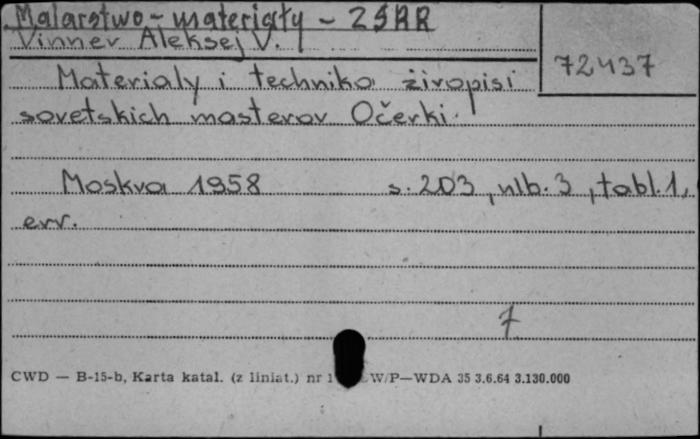 Malarstwo - materiały - ZSRR
Vinner Aleksej V.
72437
Materialy i technika živopisi
sovetskich masterov Očerki.
Moskva 1958 s. 203, nlb. 3, tabl. 1,
err.
7
CWD — B-15-b, Karta katal. (z liniat.) nr 1 W/P—WDA 35 3.6.64 3.130.000